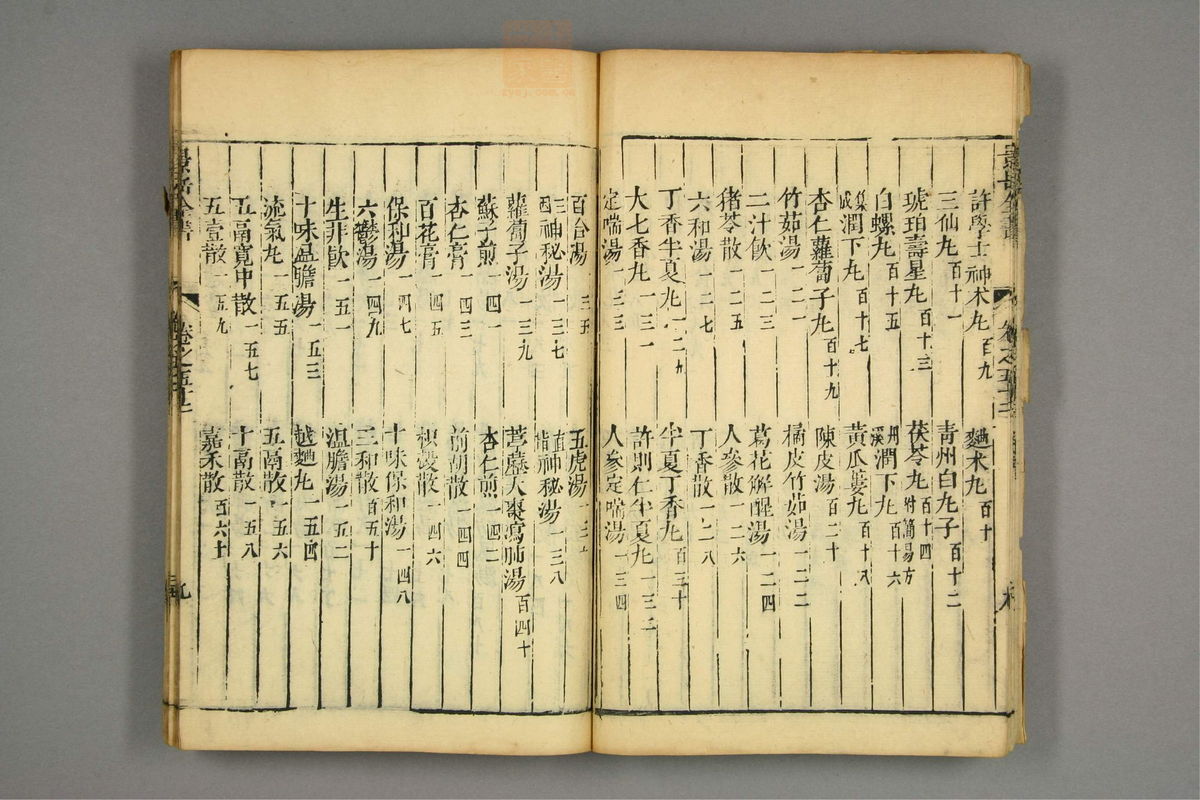 許學士神术丸 百九 麯术丸 百十
三仙丸 百十一 青州白丸子 百十二
琥珀壽星丸 百十三 茯苓丸 百十四 附簡易方
白螺丸 百十五 潤下丸 百十六
潤下丸 百十七 黄瓜蔞丸 百十八
杏仁蘿蔔子丸 百十九 陳皮湯 百二十
竹茹湯 一二一 橘皮竹茹湯 一二二
二汁飮 一二三 葛花解酲湯 一二四
猪苓散 一二五 人參散 一二六
六和湯 一二七 丁香散 一二八
丁香半夏丸 一二九 半夏丁香丸 百三十
大七香丸 一三一 許則仁半夏丸 一三二
定喘湯 一三三 人參定喘湯 一三四
百合湯 一三五 五虎湯 一三六
三神秘湯 一三七 直神秘湯 一三八
蘿蔔子湯 一三九 葶藶大棗瀉肺湯 百四十
蘇子煎 一四一 杏仁煎 一四二
杏仁膏 一四三 前胡散 一四四
百花膏 一四五 枳殼散 一四六
保和湯 一四七 十味保和湯 一四八
六鬱湯 一四九 三和散 百五十
生韭飮 一五一 温膽湯 一五二
十味温膽湯 一五三 越麯丸 一五四
流氣丸 一五五 五膈散 一五六
五膈寬中散 一五七 十膈散 一五八
五噎散 一五九 嘉禾散 百六十